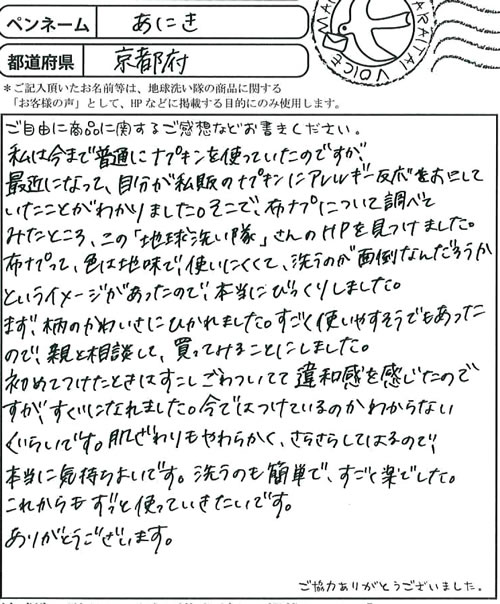 ペンネーム あにき
都道府県 京都府
WA
ARAITAI VOICE
＊ご記入頂いたお名前等は、地球洗い隊の商品に関する
「お客様の声」として、HPなどに掲載する目的にのみ使用します。
ご自由に商品に関するご感想などお書きください。
私は今まで普通にナプキンを使っていたのですが、
最近になって、自分が私販のナプキンにアレルギー反応をおこして
いたことがわかりました。そこで、布ナプについて調べて
みたところ、この「地球洗い隊」さんのHPを見つけました。
布ナプって、色は地味で、使いにくくて、洗うのが面倒なんだろうか
というイメージがあったので、本当にびっくりしました。
まず、柄のかわいさにひかれました。すごく使いやすそうでもあった
ので、親と相談して、買ってみることにしました。
初めてつけたときはすこしごわついてて違和感を感じたので
すが、すぐになれました。今ではつけているのかわからない
くらいです。肌ざわりもやわらかく、さらさらしてはるので、
本当に気持ちよいです。洗うのも簡単で、すごく楽でした。
これからもずっと使っていきたいです。
ありがとうございます。
ご協力ありがとうございました。